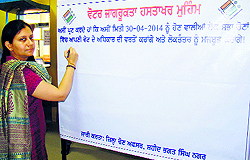 ਵੋਟਰ ਜਾਗਰੂਕਤਾ ਹਸਤਾਖਰ ਮੁਹਿੰਮ
ਅਸੀਂ ਪ੍ਰਣ ਕਰਦੇ ਹਾਂ ਕਿ ਅਸੀਂ ਮਿਤੀ 30-04-2014 ਨੂੰ ਹੋਣ ਵਾਲੀਆਂ ਲੋਕ ਸਭਾ ਚੋਣਾਂ
ਵਿੱਚ ਆਪਣੀ ਵੋਟ ਦੇ ਅਧਿਕਾਰ ਦੀ ਵਰਤੋਂ ਕਰਾਂਗੇ ਅਤੇ ਲੋਕਤੰਤਰ ਨੂੰ ਮਜ਼ਬੂਤ ਬਣਾਵਾਂਗੇ।
ਜਾਰੀ ਕਰਤਾ: ਜ਼ਿਲ੍ਹਾ ਚੋਣ ਅਫਸਰ, ਸ਼ਹੀਦ ਭਗਤ ਸਿੰਘ ਨਗਰ